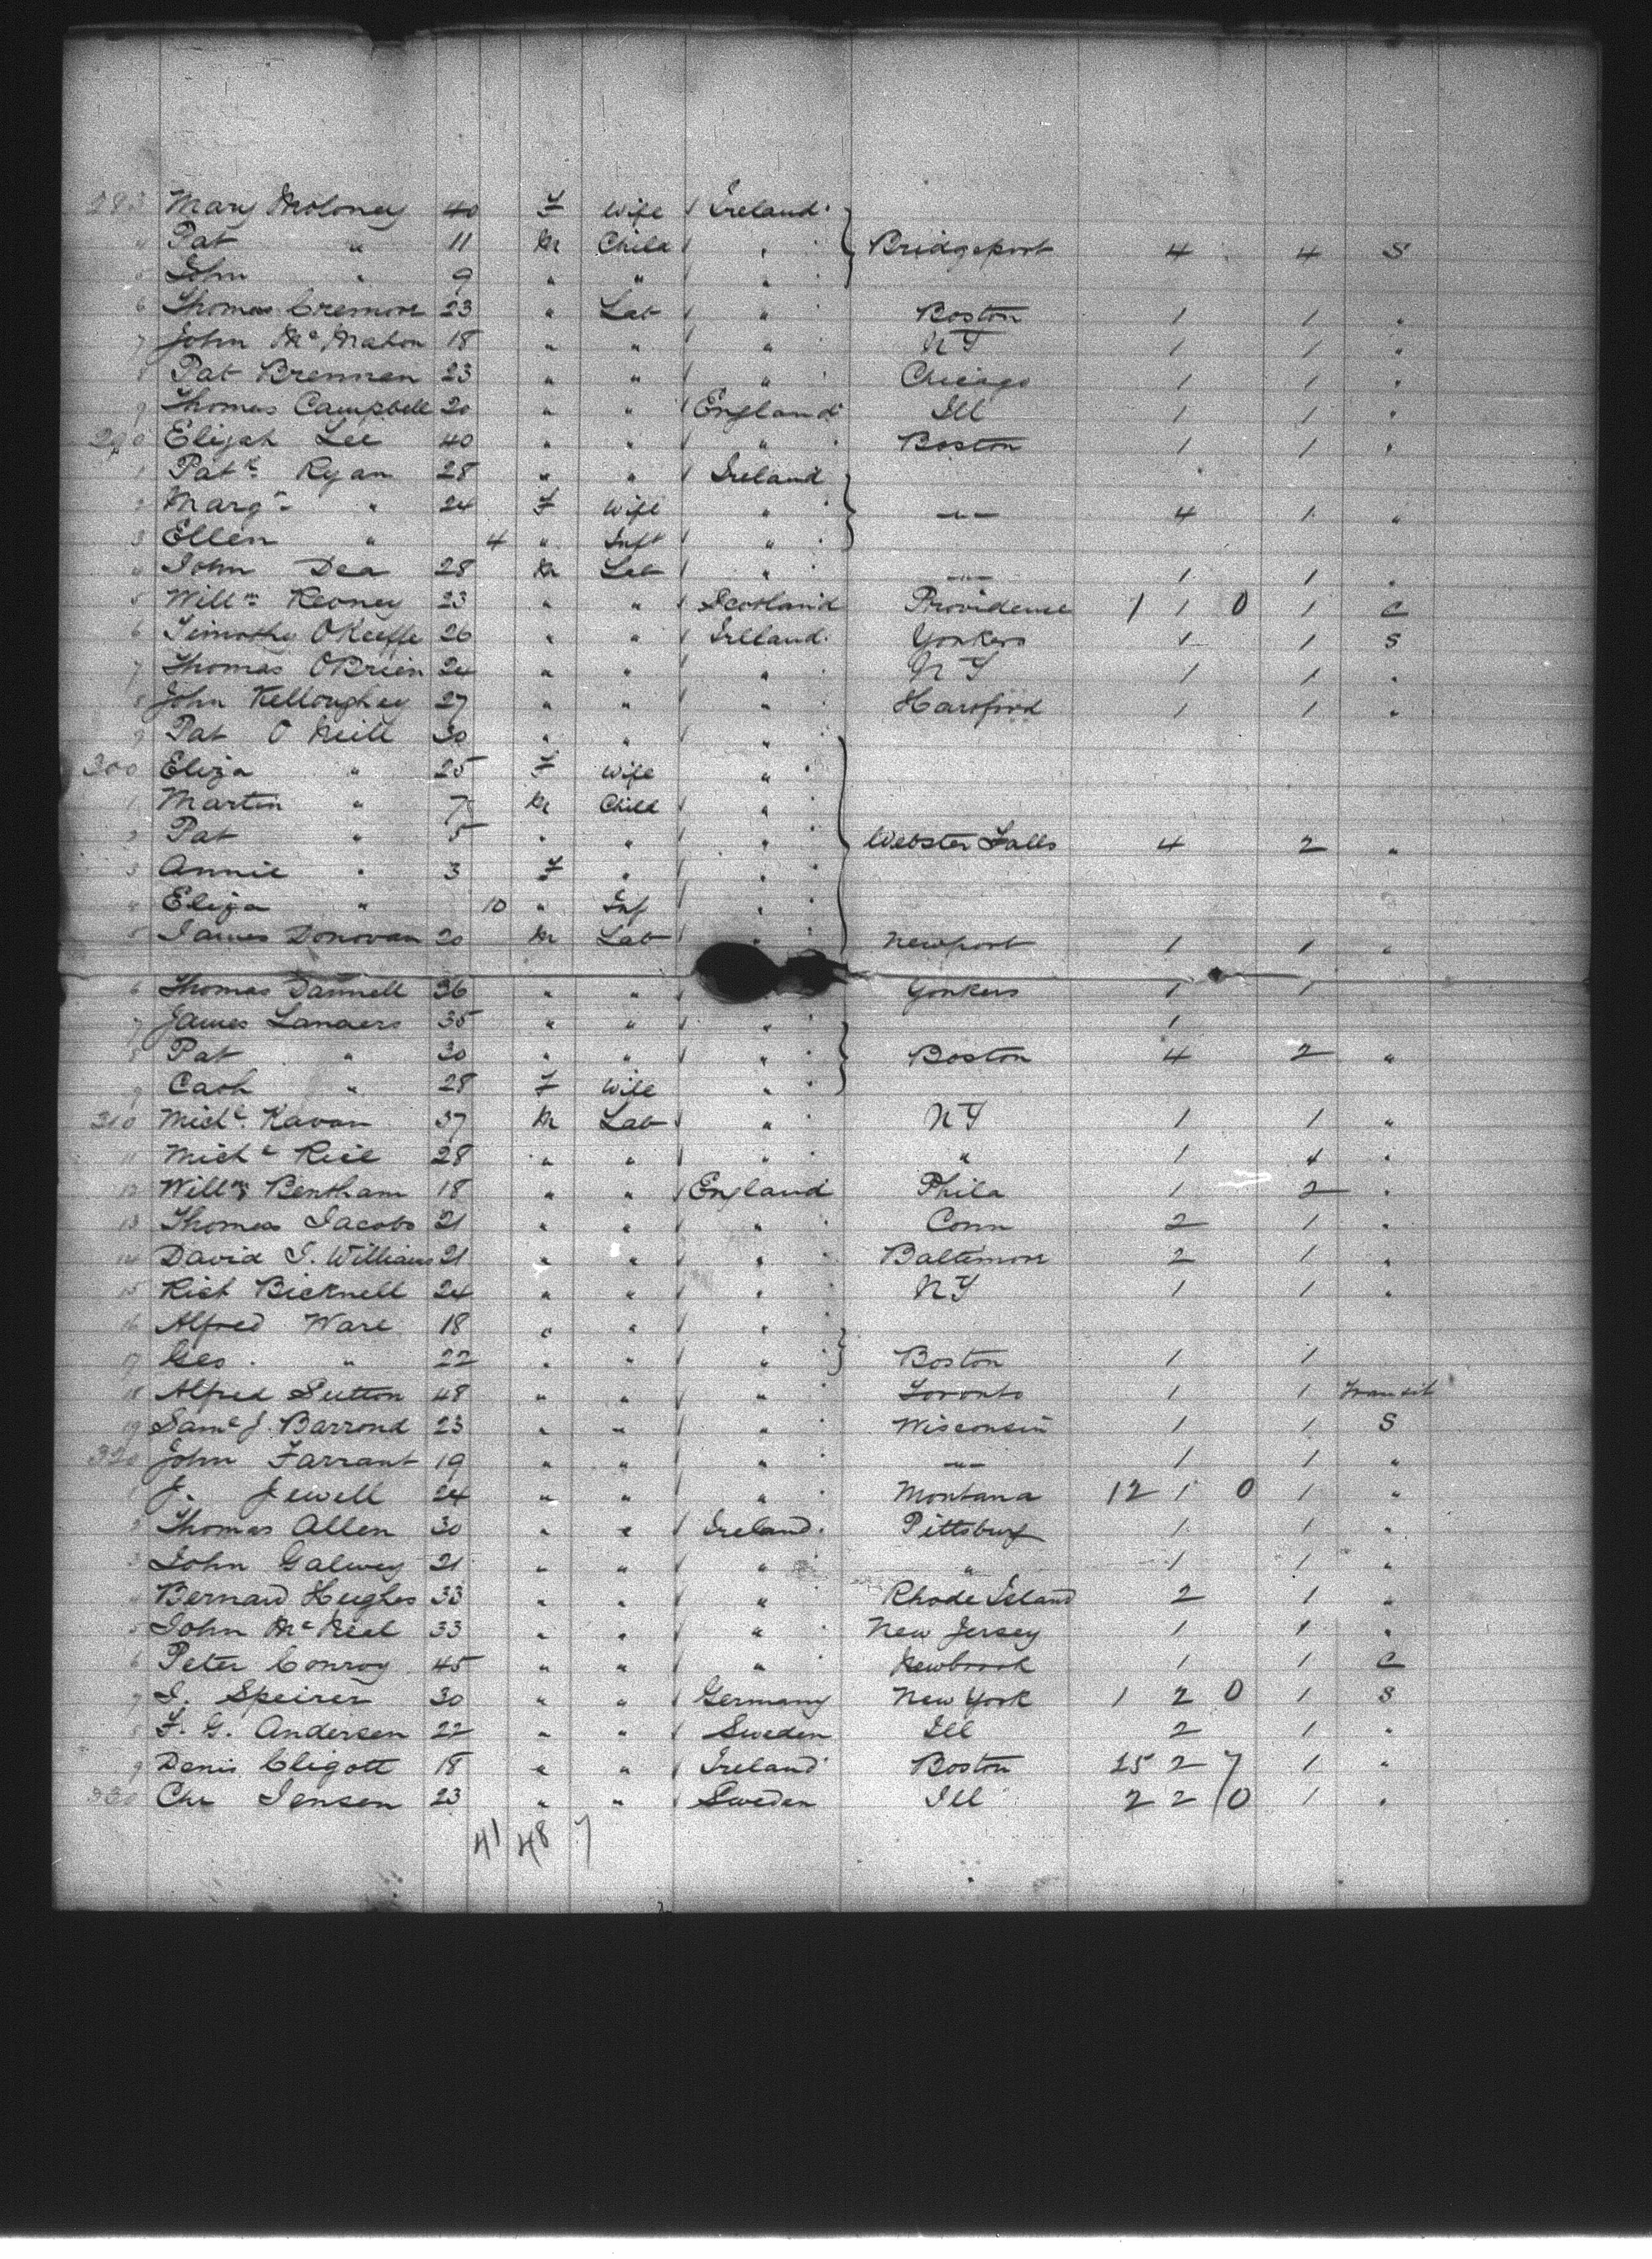 283 Mary Moloney 40 F Wife / Ireland
4 Pat " 11 M Child / " Bridgeport 4 4 S
5 John " 9 " " / "
6 Thomas Cremore 23 " Lab / " Boston 1 1 "
7 John McMahon 18 " " / " NY 1 1 "
8 Pat Brennan 23 " " / " Chicago 1 1 "
9 Thomas Campbell 20 " " / England Ill 1 1 "
290 Elijah Lee 40 " " / " Boston 1 1 "
1 Patk Ryan 28 " " / Ireland
2 Margt " 24 F Wife " -"- 4 1 "
3 Ellen " 4 " Inft / "
4 John Dea 28 M Lab / " -"- 1 1 "
5 Willm Keoney 23 " " / Scotland Providence 1 1 0 1 C
6 Timothy OKeeffe 26 " " / Ireland Yonkers 1 1 S
7 Thomas OBrien 24 " " / " NY 1 1 "
8 John Kelloughey 27 " " / " Hartford 1 1 "
9 Pat O Neill 30 " " / "
300 Eliza " 25 F Wife "
1 Martin " 7 M Child / "
2 Pat " 5 " " / " Webster Falls 4 2 "
3 Annie " 3 F " / "
4 Eliza " 10 " Inf / "
5 James Donovan 20 M Lab / " Newport 1 1 "
6 Thomas Dannell 36 " " / Yonkers 1 1
7 James Landers 35 " " / " 1
8 Pat " 30 " " / " Boston 4 2 "
9 Cath " 28 F Wife "
310 Michl Kavan 37 M Lab / " NY 1 1 "
11 Michl Rice 28 " " / " " 1 4 "
12 Willm Bentham 18 " " / England Phila 1 2 "
13 Thomas Jacobs 21 " " / " Conn 2 1 "
14 David J. Williams 21 " " / " Baltimore 2 1 "
15 Rich Bicknell 24 " " / " NY 1 1 "
16 Alfred Ware 18 " " / "
17 Geo. " 22 " " / " Boston 1 1
18 Alfred Sutton 48 " " / " Toronto 1 1 Transit
19 Saml J. Barrond 23 " " / " Wisconsin 1 1 S
320 John Farrant 19 " " / " -"- 1 1 "
1 J. Jewell 24 " " / " Montana 12 1 0 1 "
2 Thomas Allen 30 " " / Ireland Pittsburg 1 1 "
3 John Galwey 21 " " / " " 1 1 "
4 Bernard Hughes 33 " " / " Rhode Island 2 1 "
5 John McNeil 33 " " / " New Jersey 1 1 "
6 Peter Conroy 45 " " / " Newbrook 1 1 C
7 J. Speirer 30 " " / Germany New York 1 2 0 1 S
8 F. G. Andersen 22 " " / Sweden Ill 2 1 "
9 Denis Cligott 18 " " / Ireland Boston 25 2 7 1 "
330 Chr Jensen 23 " " / Sweden Ill 2 2 10 1 "
41 48 7